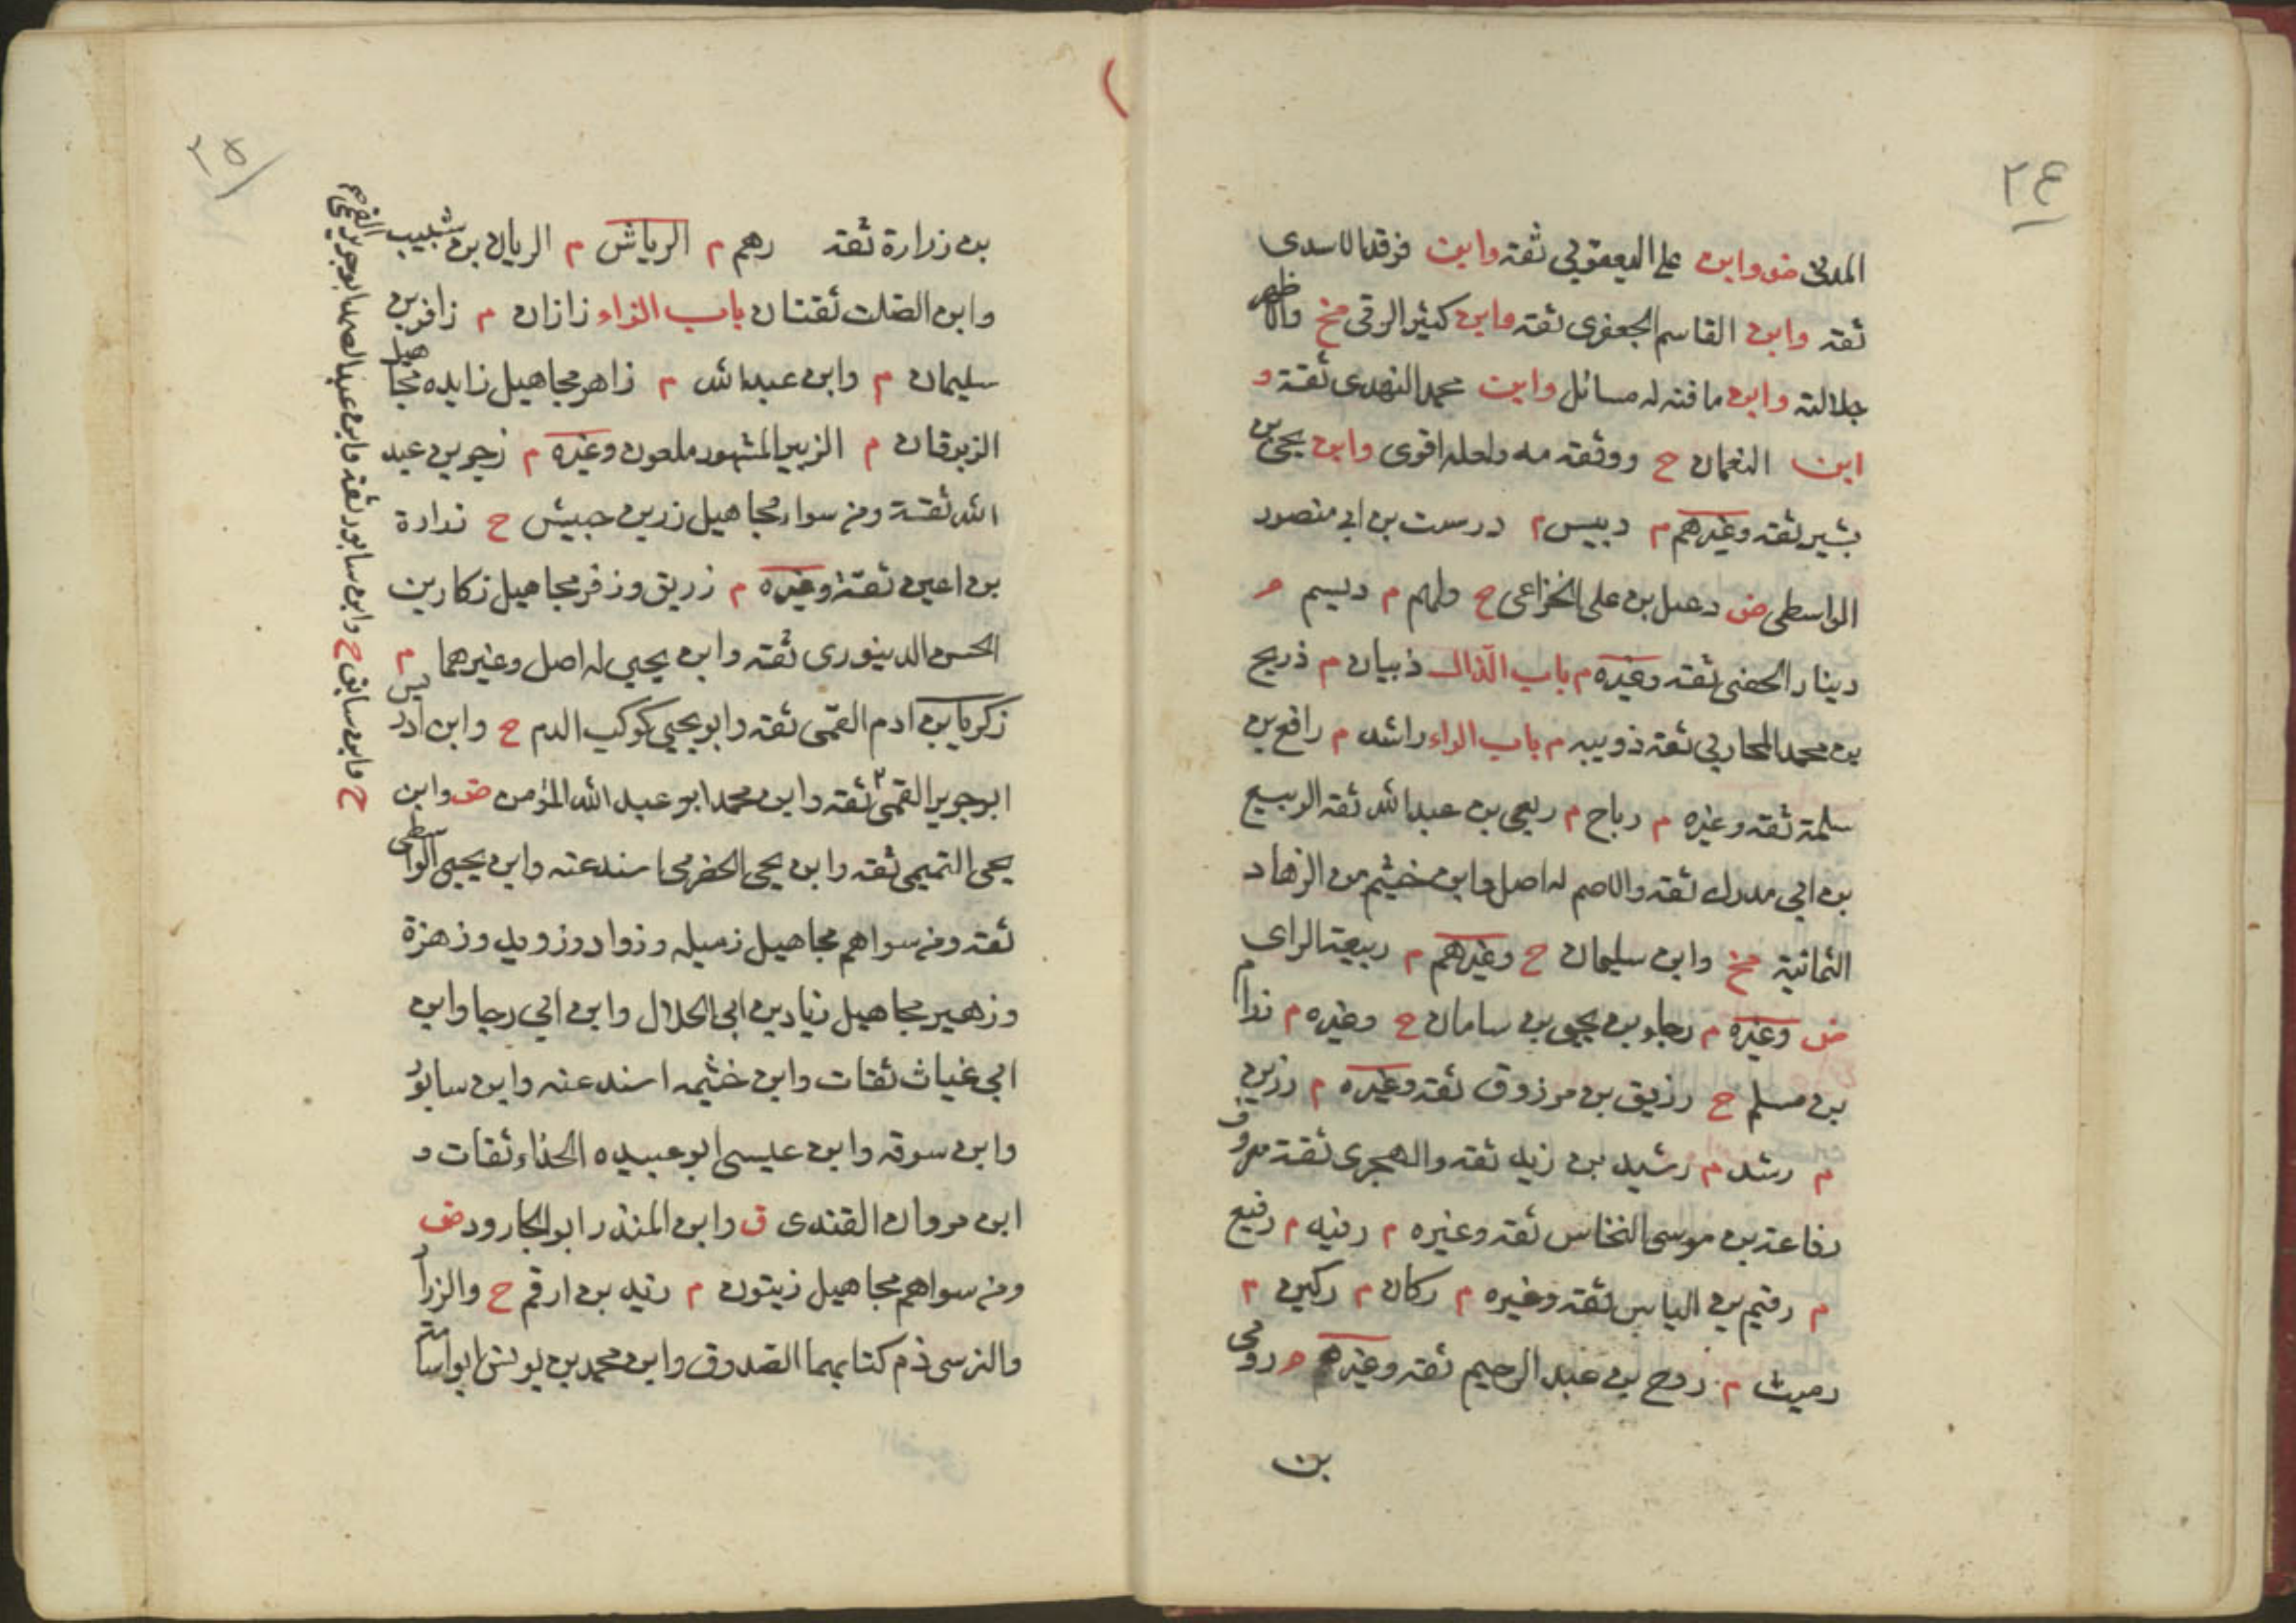 ٢٤
المدنى ض وابن على اليعقوبى ثقة وابن فرقد الاسدى
ثقه وابن القاسم الجعفرى ثقه وابن كثير الرقى مخ والاظهر
جلالته وابن مافنه له مسائل وابن محمد النهدى ثقة و
ابن النعمان ح ووثقه مه ولعله اقوى وابن يحيى بن
بشير ثقه وغيرهم م دبيس م درست بن ابى منصور
الواسطى ض دعبل بن على الخزاعى ح دلهم م ديسم م
دينار الحضى ثقه وغيره م باب الذال ذبيان م ذريح
بن محمد المحاربى ثقه ذويبه م باب الراء راشد م رافع بن
سلمة ثقه وغيره م رباح م ربعى بن عبدالله ثقه الربيع
بن ابى مدرك ثقه والاصم له اصل وابن خثيم من الزهاد
الثمانية مخ وابن سليمان ح وغيرهم م ربيعة الراى
ض وغيره م رجاء بن يحيى بن سامان ح وغيره م رزام
بن مسلم ح رزيق بن مرزوق ثقه وغيره م رزين
م رشد م رشيد بن زيد ثقه والهجرى ثقة معروف
رفاعة بن موسى النخاس ثقه وغيره م رفيد م رفيع
م رقيم بن الياس ثقه وغيره م ركان م ركين م
رميث م روح بن عبد الرحيم ثقه وغيرهم م رومى
بن
٢٥
بن زرارة ثقه رهم م الرياش م الريان بن شبيب
وابن الصلت ثقتان باب الزاء زازان م زافر بن
سليمان م وابن عبدالله م زاهر مجاهيل زايده مجاهيل
الزبرقان م الزبير المشهور ملعون وغيره م زحر بن عبد
الله ثقة ومن سواه مجاهيل زر بن حبيش ح زرارة
بن اعين ثقة وغيره م زريق وزفر مجاهيل زكار بن
الحسن الدينورى ثقه وابن يحيى له اصل وغيرهما م
زكريا بن ادم القمى ثقه وابو يحيى كوكب الدم ح وابن ادريس
ابو جرير القمى ثقه وابن محمد ابو عبد الله المؤمن ض وابن
يحيى التميمى ثقه وابن يحيى الحضرمى اسند عنه وابن يحيى الواسطى
ثقه ومن سواهم مجاهيل زميله وزواد وزويد وزهزة
وزهير مجاهيل زياد بن ابى الحلال وابن ابى رجا وابن
ابى غياث ثقات وابن خثيمه اسند عنه وابن سابور
وابن سوقه وابن عيسى ابو عبيده الحذاء ثقات و
ابن مروان القندى ق وابن المنذر ابو الجارود ض
ومن سواهم مجاهيل زيتون م زيد بن ارقم ح والزراد
والنرسى ذم كتابيهما الصدوق وابن محمد بن يونس ابو اسامة
وابن سابور ثقه وابن عبد الصمد ابو جرير القمى
ح وابن سابق ح